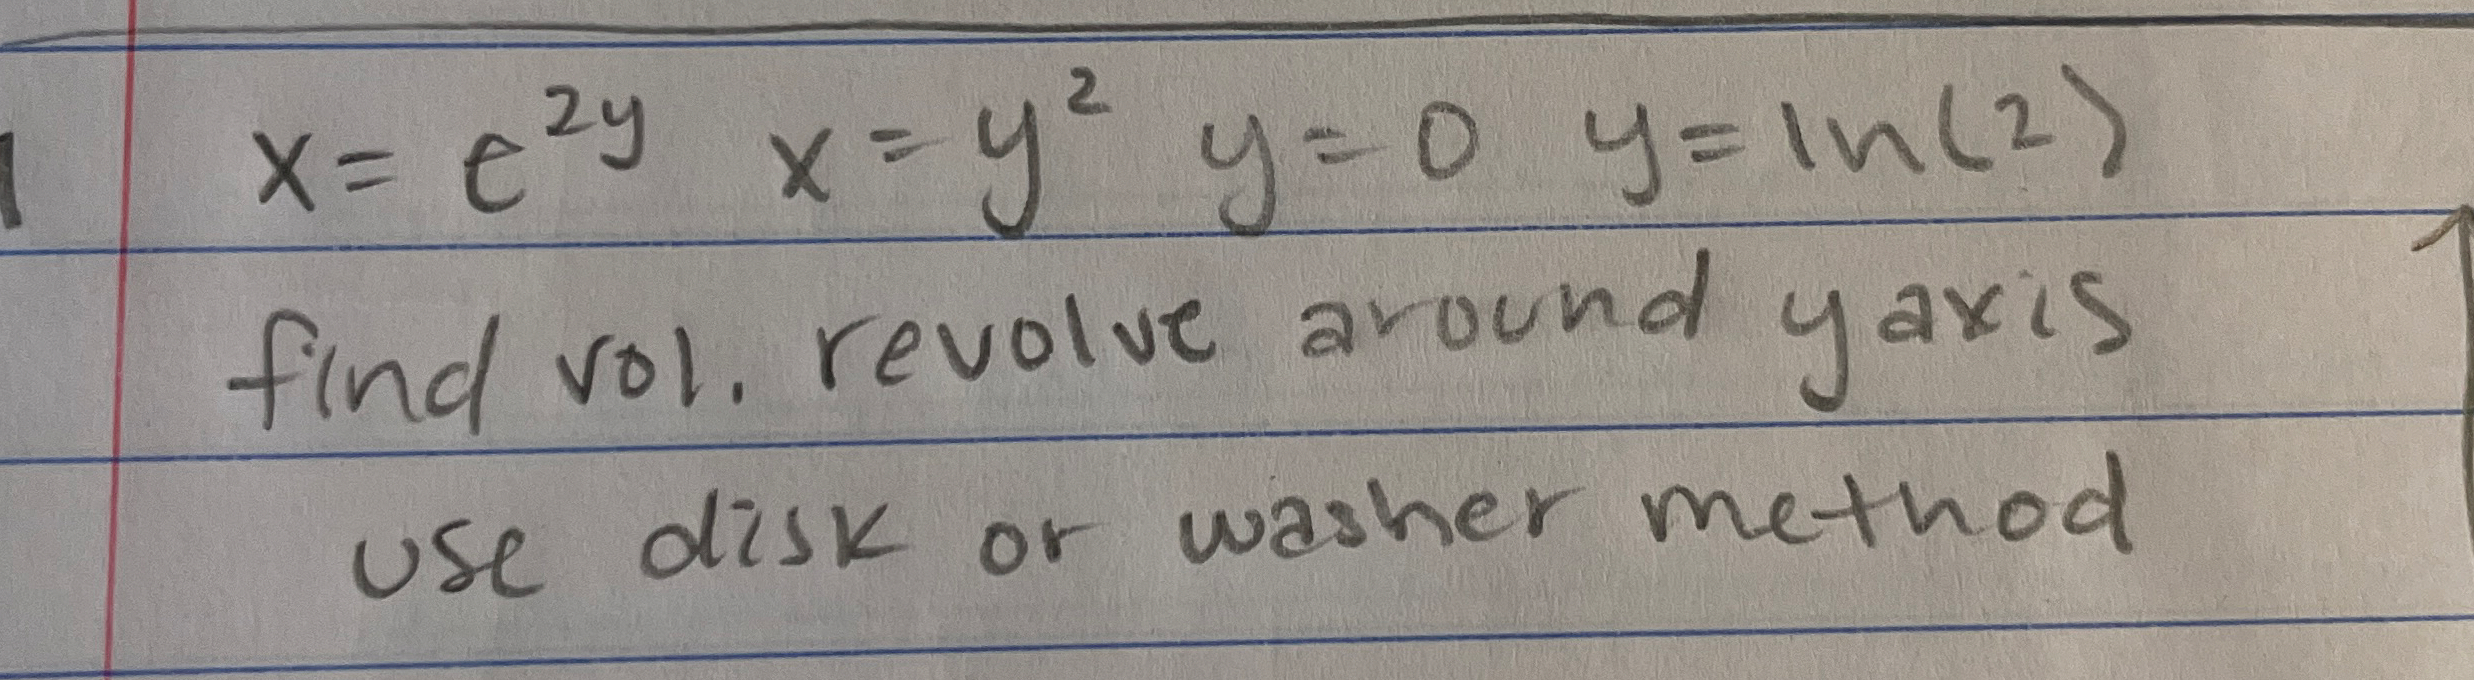 1 x = e^{2y} x = y² y = 0 y = ln(2)
find vol. revolve around y axis
use disk or washer method